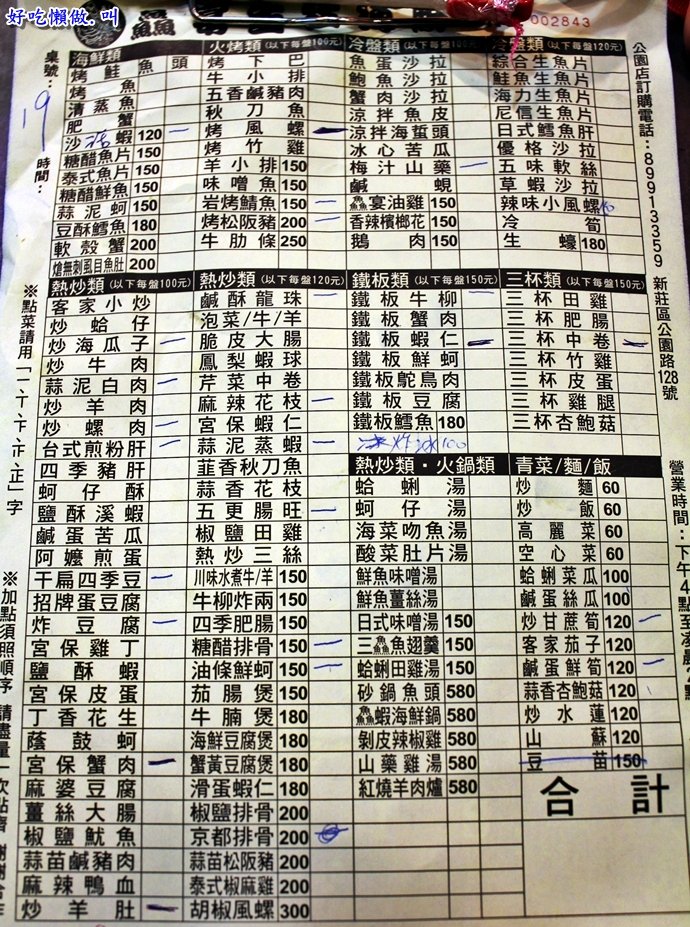 好吃懶做.叫
002843
桌號：19
時間：
海鮮類
烤鮭魚頭
烤魚
清蒸魚
肥蟹
沙活蝦 120 一
糖醋魚片 150
泰式魚片 150
糖醋鮮魚 150
蒜泥蚵 150
豆酥鱈魚 180
軟殼蟹 200
嗆無刺風目魚肚 200
火烤類（以下每盤100元）
烤下巴
牛小排
五香鹹豬肉
秋刀魚
烤風螺 一
烤竹雞
羊小排 150
味噌魚 150
岩烤鯖魚 150 一
烤松阪豬 200 一
牛肋條 250
冷盤類（以下每盤100元）
魚蛋沙拉
鮑魚沙拉
蟹肉沙拉
涼拌魚皮
涼拌海蜇頭
冰心苦瓜
梅汁山藥 一
鹹蜆
鱻宴油雞 150
香辣檳榔花 150
鵝肉 150
冷盤類（以下每盤120元）
綜合生魚片
鮭魚生魚片
海力生魚片
尼信生魚片
日式鱈魚肝
優格沙拉
五味軟絲
草蝦沙拉
辣味小風螺
冷筍
生蠔 180
公園店訂購電話：89913359 新莊區公園路128號
熱炒類（以下每盤100元）
客家小炒
炒蛤仔
炒海瓜子 一
炒牛肉
蒜泥白肉 一
炒羊肉
炒螺肉 一
台式煎粉肝 一
四季豬肝
蚵仔酥
鹽酥溪蝦
鹹蛋苦瓜
阿嬤煎蛋
干扁四季豆 一
招牌蛋豆腐
炸豆腐 一
宮保雞丁
鹽酥蝦
宮保皮蛋
丁香花生
蔭鼓蚵
宮保蟹肉 一
麻婆豆腐
薑絲大腸
椒鹽魷魚
蒜苗鹹豬肉
麻辣鴨血
炒羊肚 一
熱炒類（以下每盤120元）
鹹酥龍珠 一
泡菜/牛/羊
脆皮大腸
鳳梨蝦球
芹菜中卷
麻辣花枝 一
宮保蝦仁
蒜泥蒸蝦 一
韮香秋刀魚
蒜香花枝
五更腸旺 一
椒鹽田雞
熱炒三絲
川味水煮牛/羊 150
牛柳炸兩 150
四季肥腸 150
糖醋排骨 150 一
油條鮮蚵 150 一
茄腸煲 150
牛腩煲 180
海鮮豆腐煲 180
蟹黃豆腐煲 180
滑蛋蝦仁 180
椒鹽排骨 200
京都排骨 200
蒜苗松阪豬 200
泰式椒麻雞 200
胡椒風螺 300
鐵板類（以下每盤150元）
鐵板牛柳 一
鐵板蟹肉
鐵板蝦仁 一
鐵板鮮蚵
鐵板鴕鳥肉
鐵板豆腐
鐵板鱈魚 180
100
三杯類（以下每盤150元）
三杯田雞
三杯肥腸
三杯中卷 一
三杯竹雞
三杯皮蛋
三杯雞腿
三杯杏鮑菇
熱炒類・火鍋類
蛤蜊湯
蚵仔湯
海菜吻魚湯
酸菜肚片湯
鮮魚味噌湯
鮮魚薑絲湯
日式味噌湯 150
三鱻魚翅羹 150
蛤蜊田雞湯 150
砂鍋魚頭 580
鱻蝦海鮮鍋 580
剝皮辣椒雞 580
山藥雞湯 580
紅燒羊肉爐 580
青菜/麵/飯
炒麵 60
炒飯 60
高麗菜 60
空心菜 60
蛤蜊菜瓜 100
鹹蛋絲瓜 100
炒甘蔗筍 120 一
客家茄子 120
鹹蛋鮮筍 120 一
蒜香杏鮑菇 120
炒水蓮 120
山蘇 120
豆苗 150
合計
營業時間：下午4點至凌晨2點
※點菜請用「一、丅、下、正、正」字
※加點須照順序 請盡量一次點齊 謝謝合作